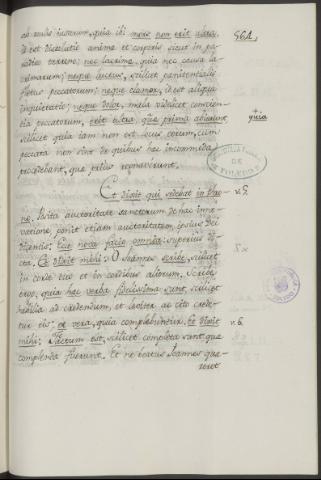 561.
ab rerum justorum, quia ibi mors non erit ultra,
id est dissolutio animæ et corporis sicut in pa-
radiso terreno; nec lacrimæ, quia nec causa la-
crimarum; neque luctus, scilicet pænitentialis
fletus peccatorum; neque clamor, id est aliqua
inquietatio; neque dolor, mala videlicet conscien-
tia peccatorum, erit ultra, quæ prima abierunt,
quia
scilicet quia jam non est locus eorum, cum
peccata non sint de quibus hæc incommoda
prodebant, quæ prius regnaverunt.
Et dixit qui sedebat in thro-
v. 5.
no. Posita auctoritate sanctorum de hac inno-
vatione, ponit etiam auctoritatem ipsius dei
dicentis: Ecce nova facio omnia: superius di-
cta. Et dixit mihi: O Johannes scribe, scilicet
in corde tuo et in cordibus aliorum. Scribe
ergo, quia hæc verba fidelissima sunt, scilicet
habilia ad credendum, et leviter ac cito crede-
tur eis; et vera, quia complebuntur. Et dixit
v. 6.
mihi: Factum est, scilicet completa sunt quæ
complenda fuerunt. Et ne beatus Joannes quæ-
reret
DE
TOLEDO